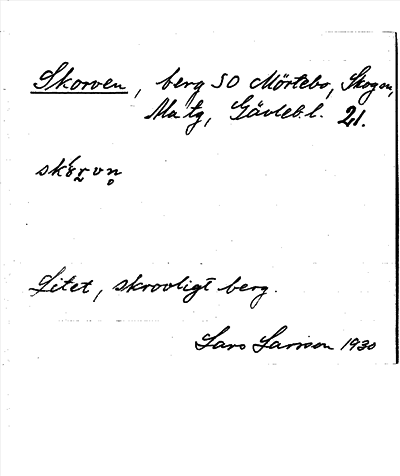 Skorven, berg SO Mörtebo, Skogen,
Ma tg, Gävleb.l. 21.
Litet, skrovligt berg.
Lars Larsson 1930